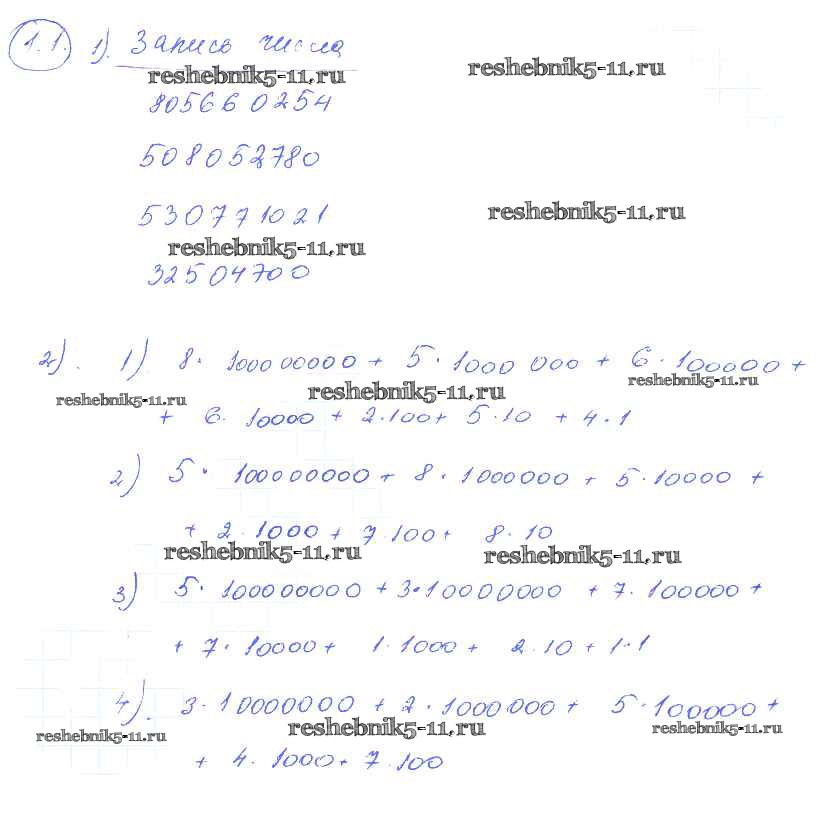 1.1. 1). Запись числа
reshebnik5-11.ru reshebnik5-11.ru
805660254
508052780
530771021 reshebnik5-11.ru
reshebnik5-11.ru
32504700
2). 1) 8 · 100000000 + 5 · 1000 000 + 6 · 100000 +
reshebnik5-11.ru reshebnik5-11.ru reshebnik5-11.ru
+ 6 · 10000 + 2·100 + 5·10 + 4·1
2) 5 · 100000000 + 8 · 1000000 + 5·10000 +
+ 2·1000 + 7·100 + 8·10
reshebnik5-11.ru reshebnik5-11.ru
3) 5 · 100000000 + 3·10000000 + 7·100000 +
+ 7·10000 + 1·1000 + 2·10 + 1·1
4). 3·10000000 + 2·1000000 + 5·100000 +
reshebnik5-11.ru reshebnik5-11.ru reshebnik5-11.ru
+ 4·1000 + 7·100